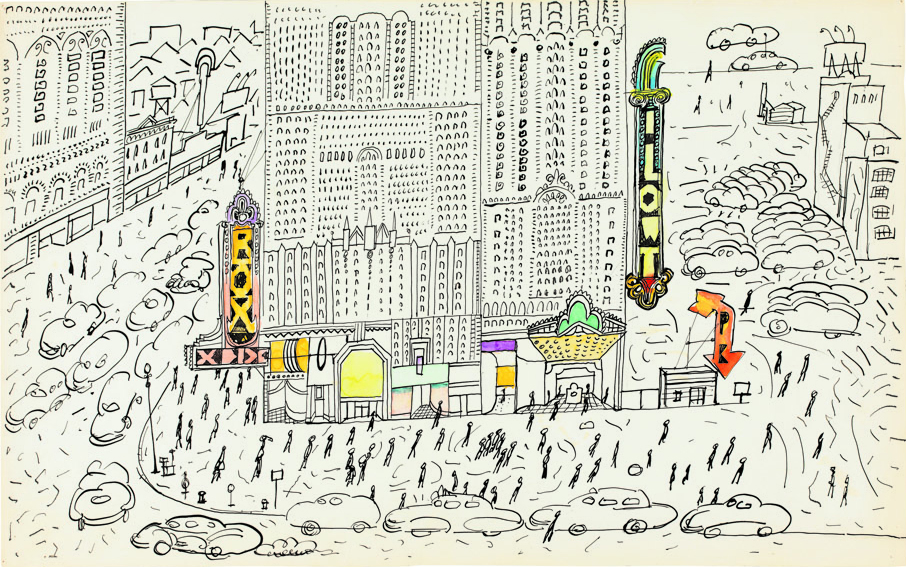 ROXX
XPIXC
ILOWT
PK